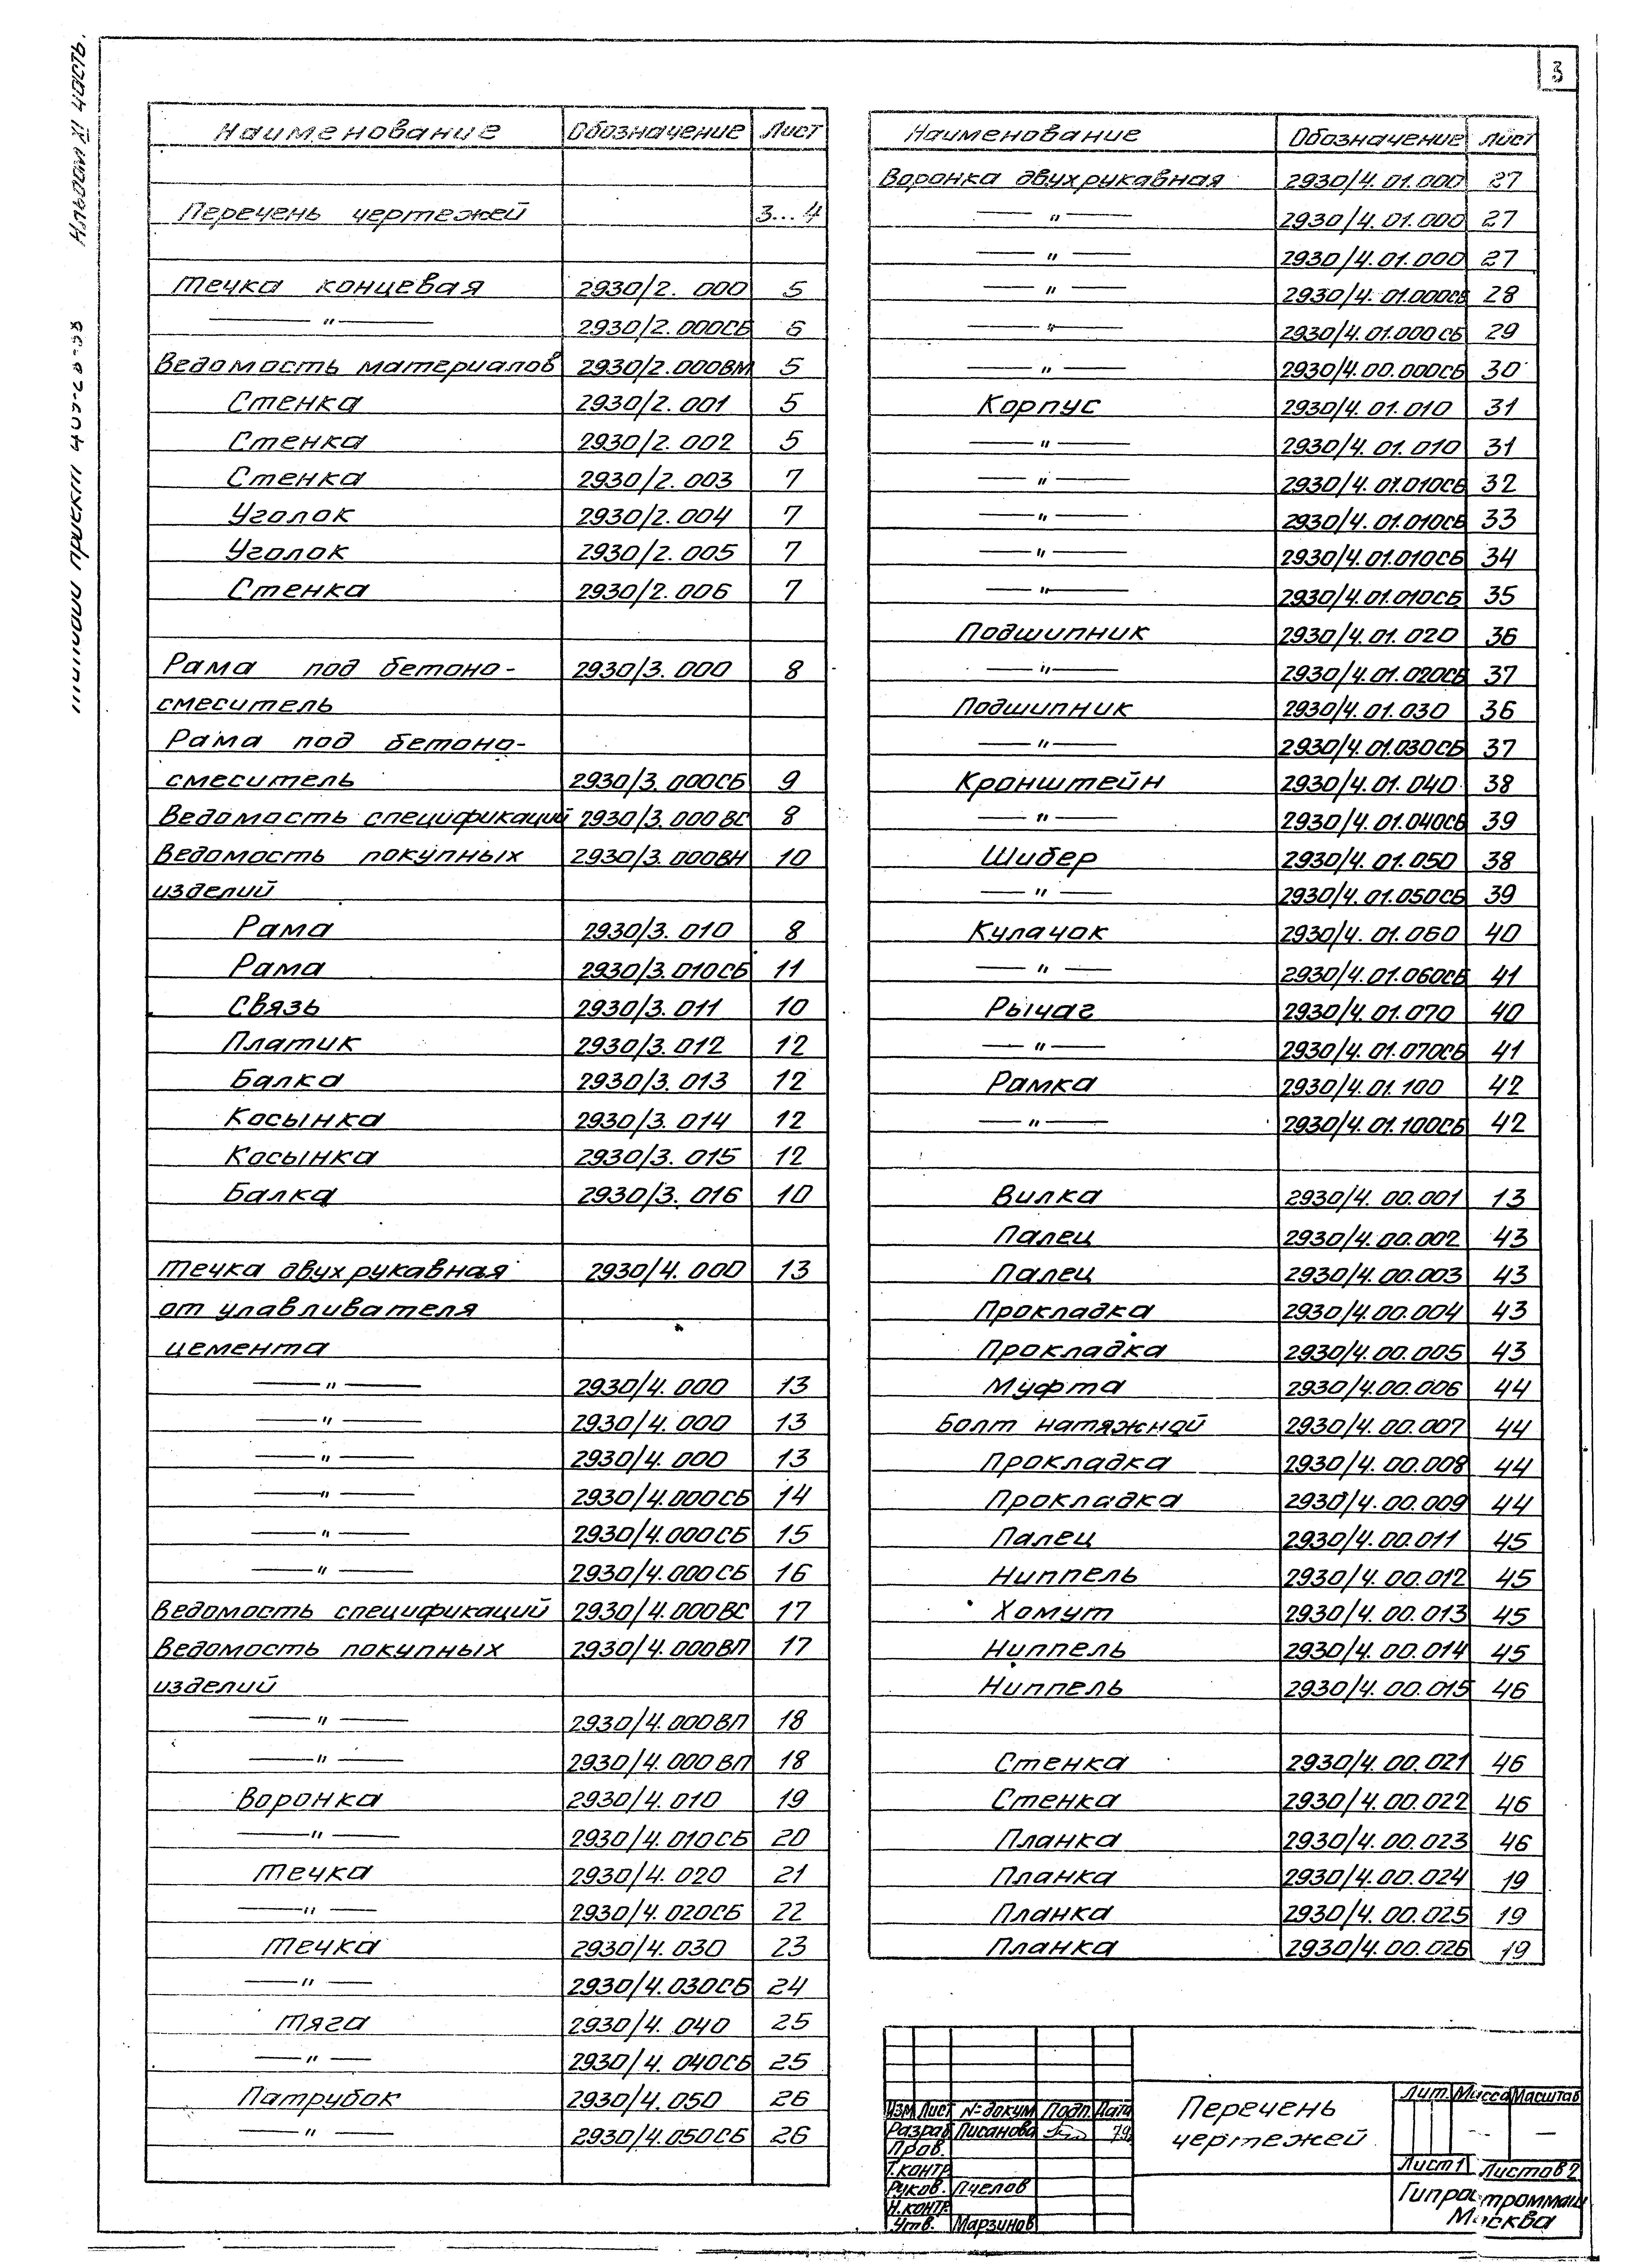 Альбом IX часть.
Типовой проект 409-28-38
3
Наименование Обозначение Лист
Перечень чертежей 3...4
Течка концевая 2930/2. 000 5
—— " —— 2930/2. 000СБ 6
Ведомость материалов 2930/2. 000ВМ 5
Стенка 2930/2. 001 5
Стенка 2930/2. 002 5
Стенка 2930/2. 003 7
Уголок 2930/2. 004 7
Уголок 2930/2. 005 7
Стенка 2930/2. 006 7
Рама под бетоно- 2930/3. 000 8
смеситель
Рама под бетоно-
смеситель 2930/3. 000СБ 9
Ведомость спецификаций 2930/3. 000 ВС 8
Ведомость покупных 2930/3. 000ВН 10
изделий
Рама 2930/3. 010 8
Рама 2930/3. 010СБ 11
Связь 2930/3. 011 10
Платик 2930/3. 012 12
Балка 2930/3. 013 12
Косынка 2930/3. 014 12
Косынка 2930/3. 015 12
Балка 2930/3. 016 10
Течка двухрукавная 2930/4. 000 13
от улавливателя
цемента
—— " —— 2930/4. 000 13
—— " —— 2930/4. 000 13
—— " —— 2930/4. 000 13
—— " —— 2930/4. 000СБ 14
—— " —— 2930/4. 000СБ 15
—— " —— 2930/4. 000СБ 16
Ведомость спецификаций 2930/4. 000ВС 17
Ведомость покупных 2930/4. 000ВП 17
изделий
—— " —— 2930/4. 000ВП 18
—— " —— 2930/4. 000 ВП 18
Воронка 2930/4. 010 19
—— " —— 2930/4. 010СБ 20
Течка 2930/4. 020 21
—— " —— 2930/4. 020СБ 22
Течка 2930/4. 030 23
—— " —— 2930/4. 030СБ 24
Тяга 2930/4. 040 25
—— " —— 2930/4. 040СБ 25
Патрубок 2930/4. 050 26
—— " —— 2930/4. 050СБ 26
Наименование Обозначение Лист
Воронка двухрукавная 2930/4. 01. 000 27
—— " —— 2930/4. 01. 000 27
—— " —— 2930/4. 01. 000 27
—— " —— 2930/4. 01. 000СБ 28
—— " —— 2930/4. 01. 000 СБ 29
—— " —— 2930/4. 00. 000СБ 30
Корпус 2930/4. 01. 010 31
—— " —— 2930/4. 01. 010 31
—— " —— 2930/4. 01. 010СБ 32
—— " —— 2930/4. 01. 010СБ 33
—— " —— 2930/4. 01. 010СБ 34
—— " —— 2930/4. 01. 010СБ 35
Подшипник 2930/4. 01. 020 36
—— " —— 2930/4. 01. 020СБ 37
Подшипник 2930/4. 01. 030 36
—— " —— 2930/4. 01. 030СБ 37
Кронштейн 2930/4. 01. 040 38
—— " —— 2930/4. 01. 040СБ 39
Шибер 2930/4. 01. 050 38
—— " —— 2930/4. 01. 050СБ 39
Кулачок 2930/4. 01. 060 40
—— " —— 2930/4. 01. 060СБ 41
Рычаг 2930/4. 01. 070 40
—— " —— 2930/4. 01. 070СБ 41
Рамка 2930/4. 01. 100 42
—— " —— 2930/4. 01. 100СБ 42
Вилка 2930/4. 00. 001 13
Палец 2930/4. 00. 002 43
Палец 2930/4. 00. 003 43
Прокладка 2930/4. 00. 004 43
Прокладка 2930/4. 00. 005 43
Муфта 2930/4. 00. 006 44
Болт натяжной 2930/4. 00. 007 44
Прокладка 2930/4. 00. 008 44
Прокладка 2930/4. 00. 009 44
Палец 2930/4. 00. 011 45
Ниппель 2930/4. 00. 012 45
Хомут 2930/4. 00. 013 45
Ниппель 2930/4. 00. 014 45
Ниппель 2930/4. 00. 015 46
Стенка 2930/4. 00. 021 46
Стенка 2930/4. 00. 022 46
Планка 2930/4. 00. 023 46
Планка 2930/4. 00. 024 19
Планка 2930/4. 00. 025 19
Планка 2930/4. 00. 026 19
Изм Лист № докум Подп. Дата
Разраб Писанова 79
Пров.
Т.контр
Руков. Пчелов
Н.контр.
Утв. Марзинов
Перечень
чертежей
Лит. Масса Масштаб
— —
Лист 1 Листов 2
Гипростроммаш
Москва